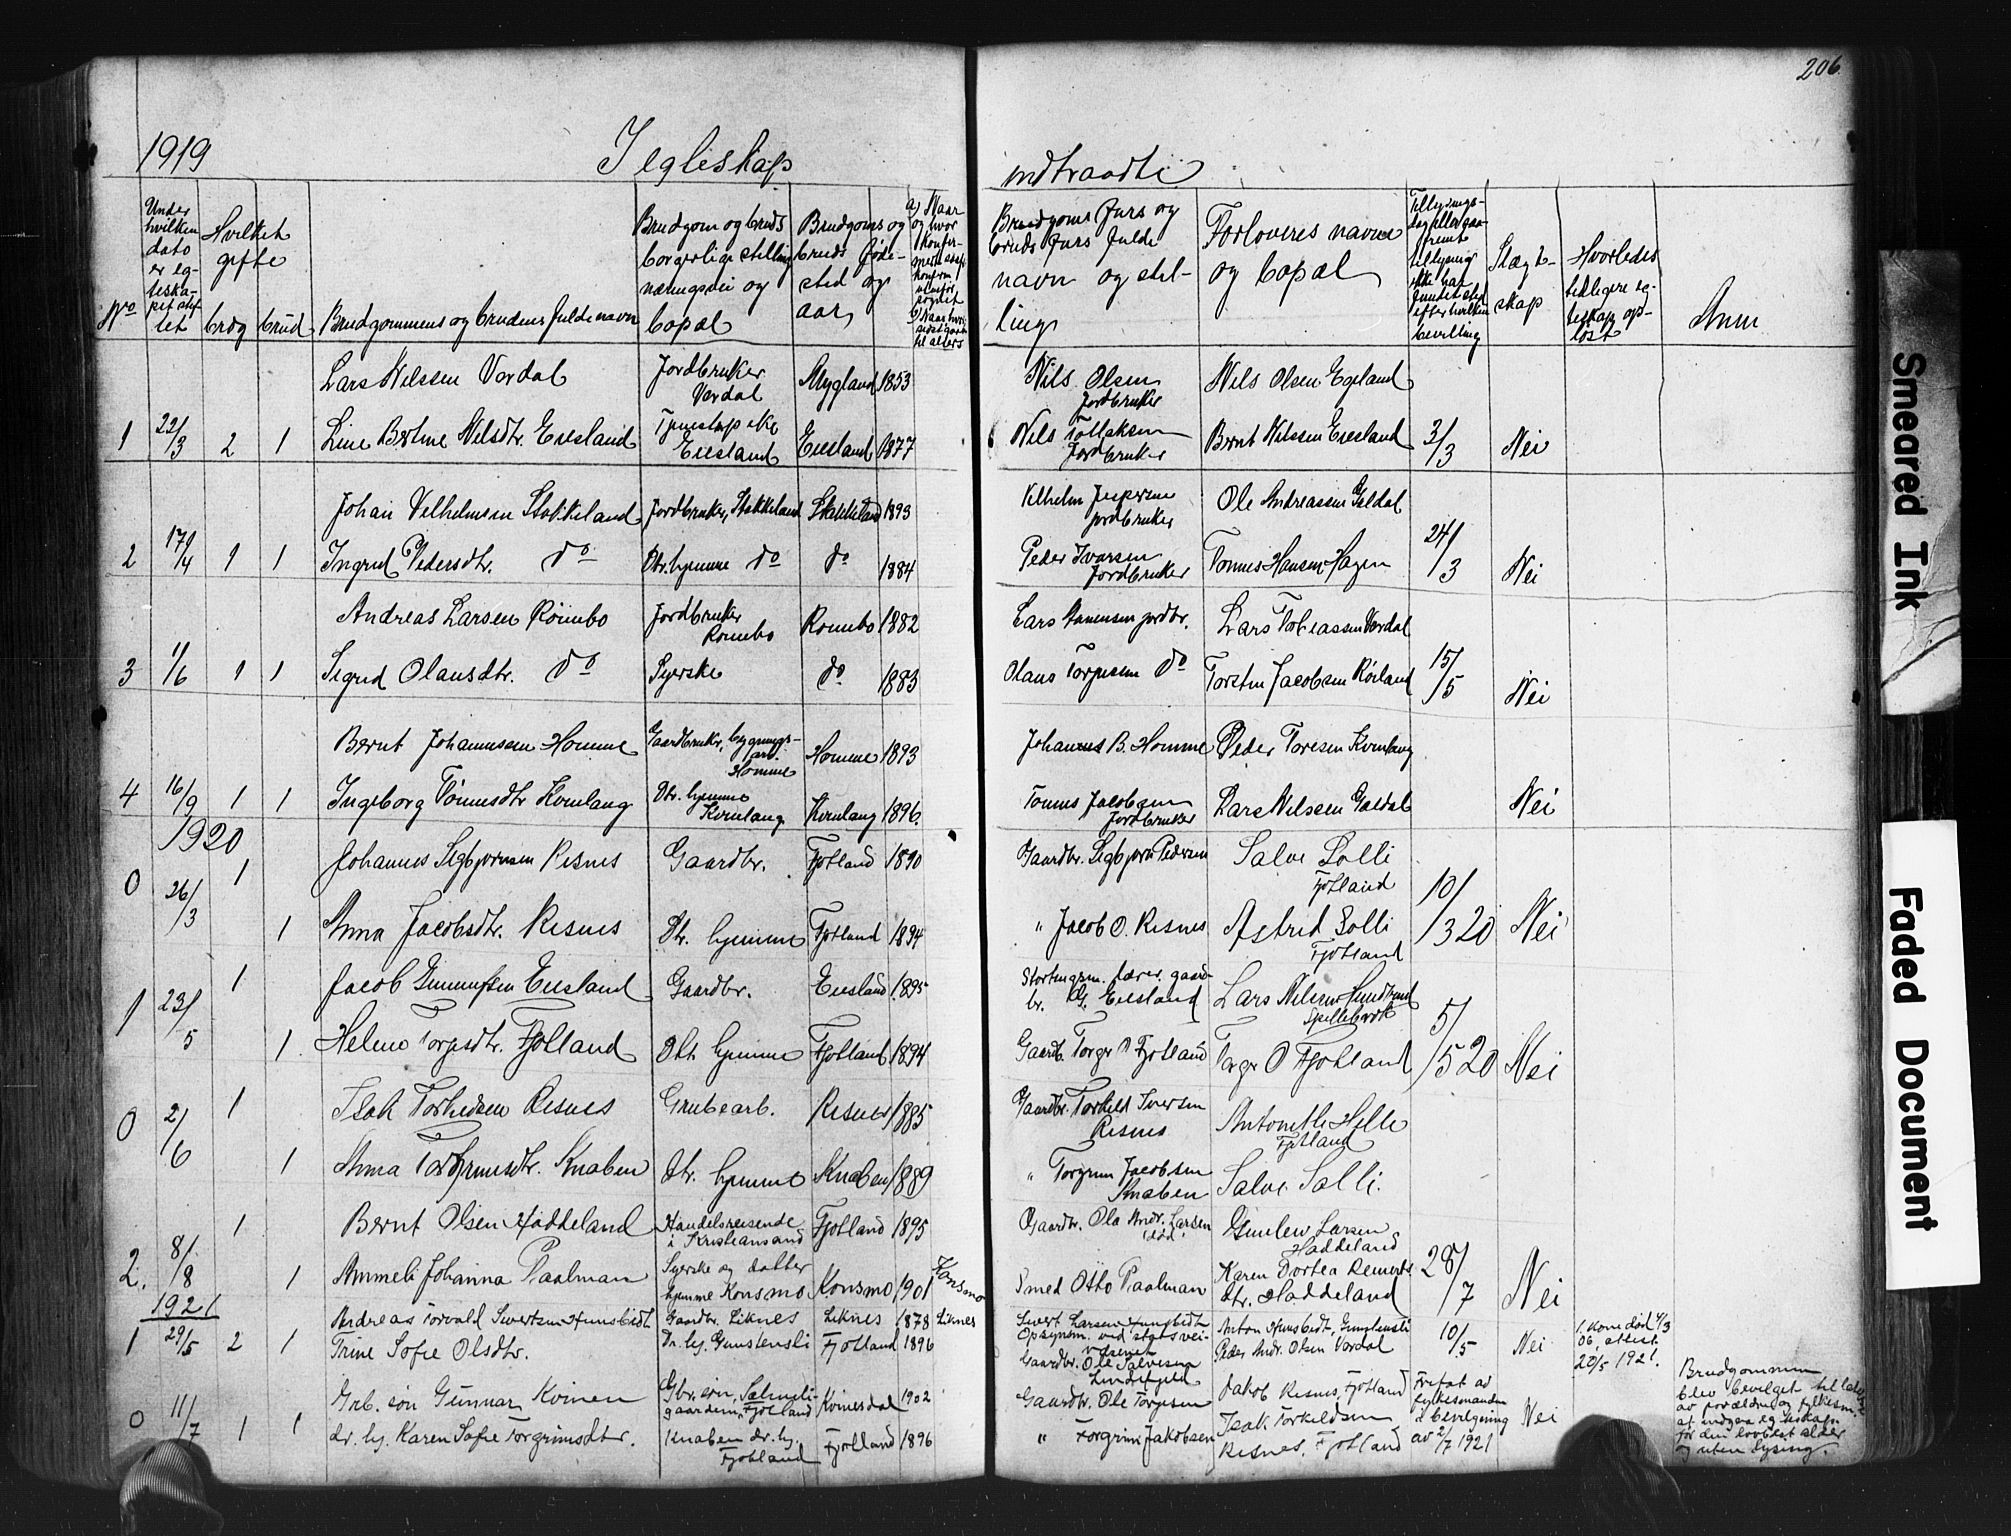 206
1919
I egteskap
indtraadte
No
Under hvilken dato er egteskapet stiftet
Hvilket gifte
brdg brud
Brudgommens og brudens fulde navn
Brudgom og bruds borgerlige stilling næringsvei og bopæl
Brudgoms og bruds fødested og aar
Brudgoms fars og bruds fars fulde navn og stilling
Forloveres navne og bopæl
Slægtskap
Hvorledes tidligere egteskap opløst
Anm
Lars Nilssen Vordal Jordbruker Vordal Mygland 1853 Nils Olsen Jordbruker Nils Olsen Egeland
1 22/3 2 1 Line Bertine Nilsdtr. Eiesland Eiesland Eiesland 1877 Nils Tollaksen Jordbruker Bernt Nilssen Eiesland 3/3 Nei
Johan Vilhelmsen Stakkeland Jordbruker, Stakkeland Stakkeland 1893 Vilhelm Jespersen jordbruker Ole Andreassen Galdal
2 17/4 1 1 Ingrid Pedersdtr. do Dtr. hjemme do do 1884 Peder Ivarsen Jordbruker Tønnes Hansen Hagen 24/3 Nei
Andreas Larsen Rømbo Jordbruker Rømbo Rømbo 1882 Lars jordbr. Lars Tobiassen Vordal
3 1/6 1 1 Sigrid Olausdtr. do Syerske do 1883 Olaus Torjusen do Torsten Jacobsen Røiland 15/5 Nei
Bernt Johannesen Homme Gaardbruker, bygnings- arb. Homme Homme 1893 Johannes B. Homme Peder Toresen Kvinlaug
4 16/9 1 1 Ingeborg Tønnesdtr Kvinlaug Dtr. hjemme Kvinlaug Kvinlaug 1896. Tønnes Jacobsen Jordbruker Lars Nilssen Galdal Nei
1920
Johannes Sigbjørnsen Risnes Gaardbr. Fjotland 1890 Gaardbr. Sigbjørn Pedersen Salve Solli Fjotland
0 26/3 1
1 Anna Jacobsdtr. Risnes Dtr. hjemme Fjotland 1894 " Jacob O. Risnes Astrid Solli Fjotland 10/3 20 Nei
1 Jacob Gunnufsen Eiesland Gaardbr. Eiesland 1895 Stortingsm. lærer, gaardbr. G. Eiesland Lars Nilsen
1 23/5
1 Helene Torjusdtr. Fjotland Dtr hjemme Fjotland 1894 Gaardb. Fjotland O Fjotland 5/5 20 Nei
0 2/6 1 Isak Torkildsen Risnes Grubearb. Risnes 1885 Gaardbr. Torkild Iversen Risnes Antonette Helle Fjotland
1 Anna Torgrimsdtr. Knaben Dtr. hjemme Knaben 1889 " Torgrim Jacobsen Knaben Salve Solli.
1 Bernt Olsen Haddeland Handelsreisende i Kristiansand Fjotland 1895 Gaardbr. Ola Andr. Larsen (død) Gunlev Larsen Haddeland
2. 8/8
1 Ammeli Johanna Paalman Syerske og datter hjemme Konsmo Konsmo 1901 Konsmo Smed Otto Paalman Karen Dortea Reinertsdtr. Haddeland 28/7 Nei
1921
Andreas Torvald Sivertsen Hunsbedt Gaardbr. Liknes Liknes 1878 Liknes Sivert Larsen Hunsbedt Opsynsm. ved statsveivæsenet Anton Hunsbedt,
1 29/5 2 1 Trine Sofie Olsdtr. Dr. hj. Fjotland 1896 Gaardbr. Ole Salvesen Peder Andr. Olsen Vordal 10/5 Nei 1 kone død 4/3 06, attest 22/5 1921.
Grb. søn Gunnar Kvinen Gbr. søn, Fjotland Kvinesdal 1902 Gaardbr. Ole Torjusen Jakob Risnes, Fjotland Fritat av fylkesmanden
0 11/7 1 1 dr. hj. Karen Sofie Torgrimsdtr. Knaben dr. hj. Fjotland Fjotland 1896 " Torgrim Jakobsen Isak Torkildsen Risnes, Fjotland i bevilgning av 2/7 1921 Nei
Brudgommen
blev bevilget tilladelse
av forældre og fylkesm.
at indgaa egteskap
før den lovbest alder
og uten lysing.
Smeared Ink
Faded Document